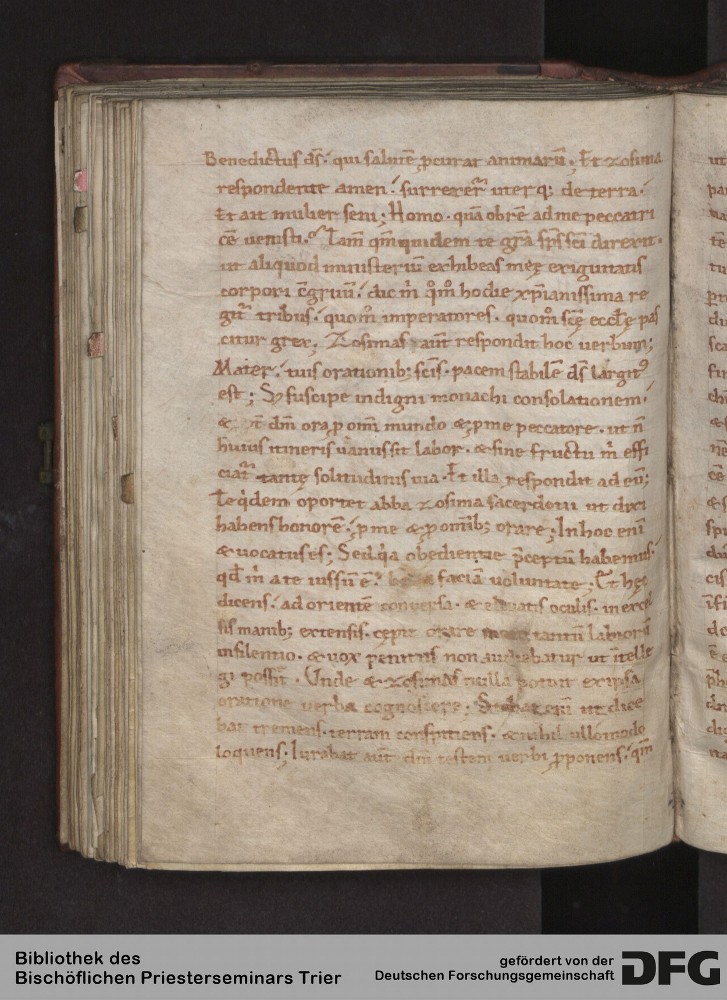 Benedictus ds̄. qui salutē ꝓcurat animarū. Et zosima
respondente amen. surrexer̄ uterq; de terra.
Et ait mulier seni; Homo. quā obrē ad me peccatri
cē uenisti. Tam̄ qm̄ quidem te gr̄a sp̄s sc̄i direxit.
ut aliquod ministeriū exhibeas meę exiguitatis
corpori c̄gruū. dic m̄ qm̊ hodie xp̄ianissima re
git̄ tribus. quom̊ imperatores. quom̊ sc̄ę eccl̄ę pas
citur grex. Zosimas aut̄ respondit hoc uerbum;
Mater. tuis orationib; sc̄is. pacem stabilē ds̄ largit᷒
est; Sꝫ suscipe indigni monachi consolationem.
& dm̄ ora ꝓ omi mundo & ꝓ me peccatore. ut n̄
huius itineris uanus sit labor. & sine fructu m̄ effi
ciat̄ tantę solitudinis uia. Et illa respondit ad eū;
Te q̇dem oportet abba zosima sacerdotii ut dixi
habens honorē. ꝓ me & ꝓ omīb; orare; In hoc enī
& uocatus es; Sed q̇a obedientię p̄ceptū habemus.
qd̄ m̄ a te iussū ē. faciā uoluntate; Et hęc
dicens. ad orientē conuersa. & eleuatis oculis. in excel
sis manib; extensis. cępit orare tantū labiorū
in silentio. & uox penitus non audiebatur ut ītelle
gi possit. Unde & zosimas nulla potuit ex ipsa
oratione uerba cognoscere; Stabat enī ut dice
bat tremens. terram conspiciens. & nihil ullomodo
loquens; Iurabat aut̄ dm̄ testem uerbi ꝓponens. qm̄
Bibliothek des
Bischöflichen Priesterseminars Trier
gefördert von der
Deutschen Forschungsgemeinschaft
DFG